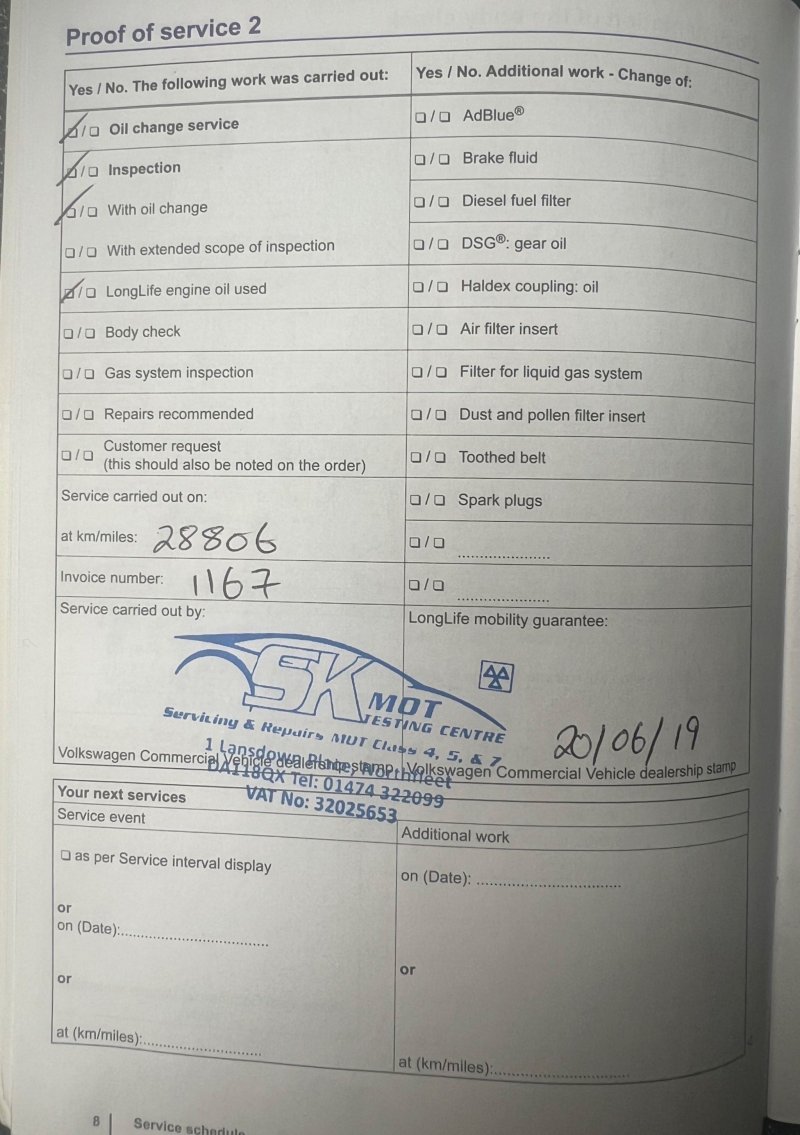 Proof of service 2
Yes / No. The following work was carried out:
❏ / ❏ Oil change service
❏ / ❏ Inspection
❏ / ❏ With oil change
❏ / ❏ With extended scope of inspection
❏ / ❏ LongLife engine oil used
❏ / ❏ Body check
❏ / ❏ Gas system inspection
❏ / ❏ Repairs recommended
❏ / ❏ Customer request
(this should also be noted on the order)
Service carried out on:
at km/miles: 28806
Invoice number: 1167
Yes / No. Additional work - Change of:
❏ / ❏ AdBlue®
❏ / ❏ Brake fluid
❏ / ❏ Diesel fuel filter
❏ / ❏ DSG®: gear oil
❏ / ❏ Haldex coupling: oil
❏ / ❏ Air filter insert
❏ / ❏ Filter for liquid gas system
❏ / ❏ Dust and pollen filter insert
❏ / ❏ Toothed belt
❏ / ❏ Spark plugs
❏ / ❏ ......................
❏ / ❏ ......................
Service carried out by:
LongLife mobility guarantee:
SK MOT
TESTING CENTRE
Servicing & Repairs MOT Class 4, 5, & 7
1 Lansdown Place, Northfleet
DA118QX Tel: 01474 322099
VAT No: 32025653
20/06/19
Volkswagen Commercial Vehicle dealership stamp
Volkswagen Commercial Vehicle dealership stamp
Your next services
Service event
❏ as per Service interval display
or
on (Date):...................................
or
at (km/miles):............................
Additional work
on (Date): ...................................
or
at (km/miles):................................
8 Service schedule